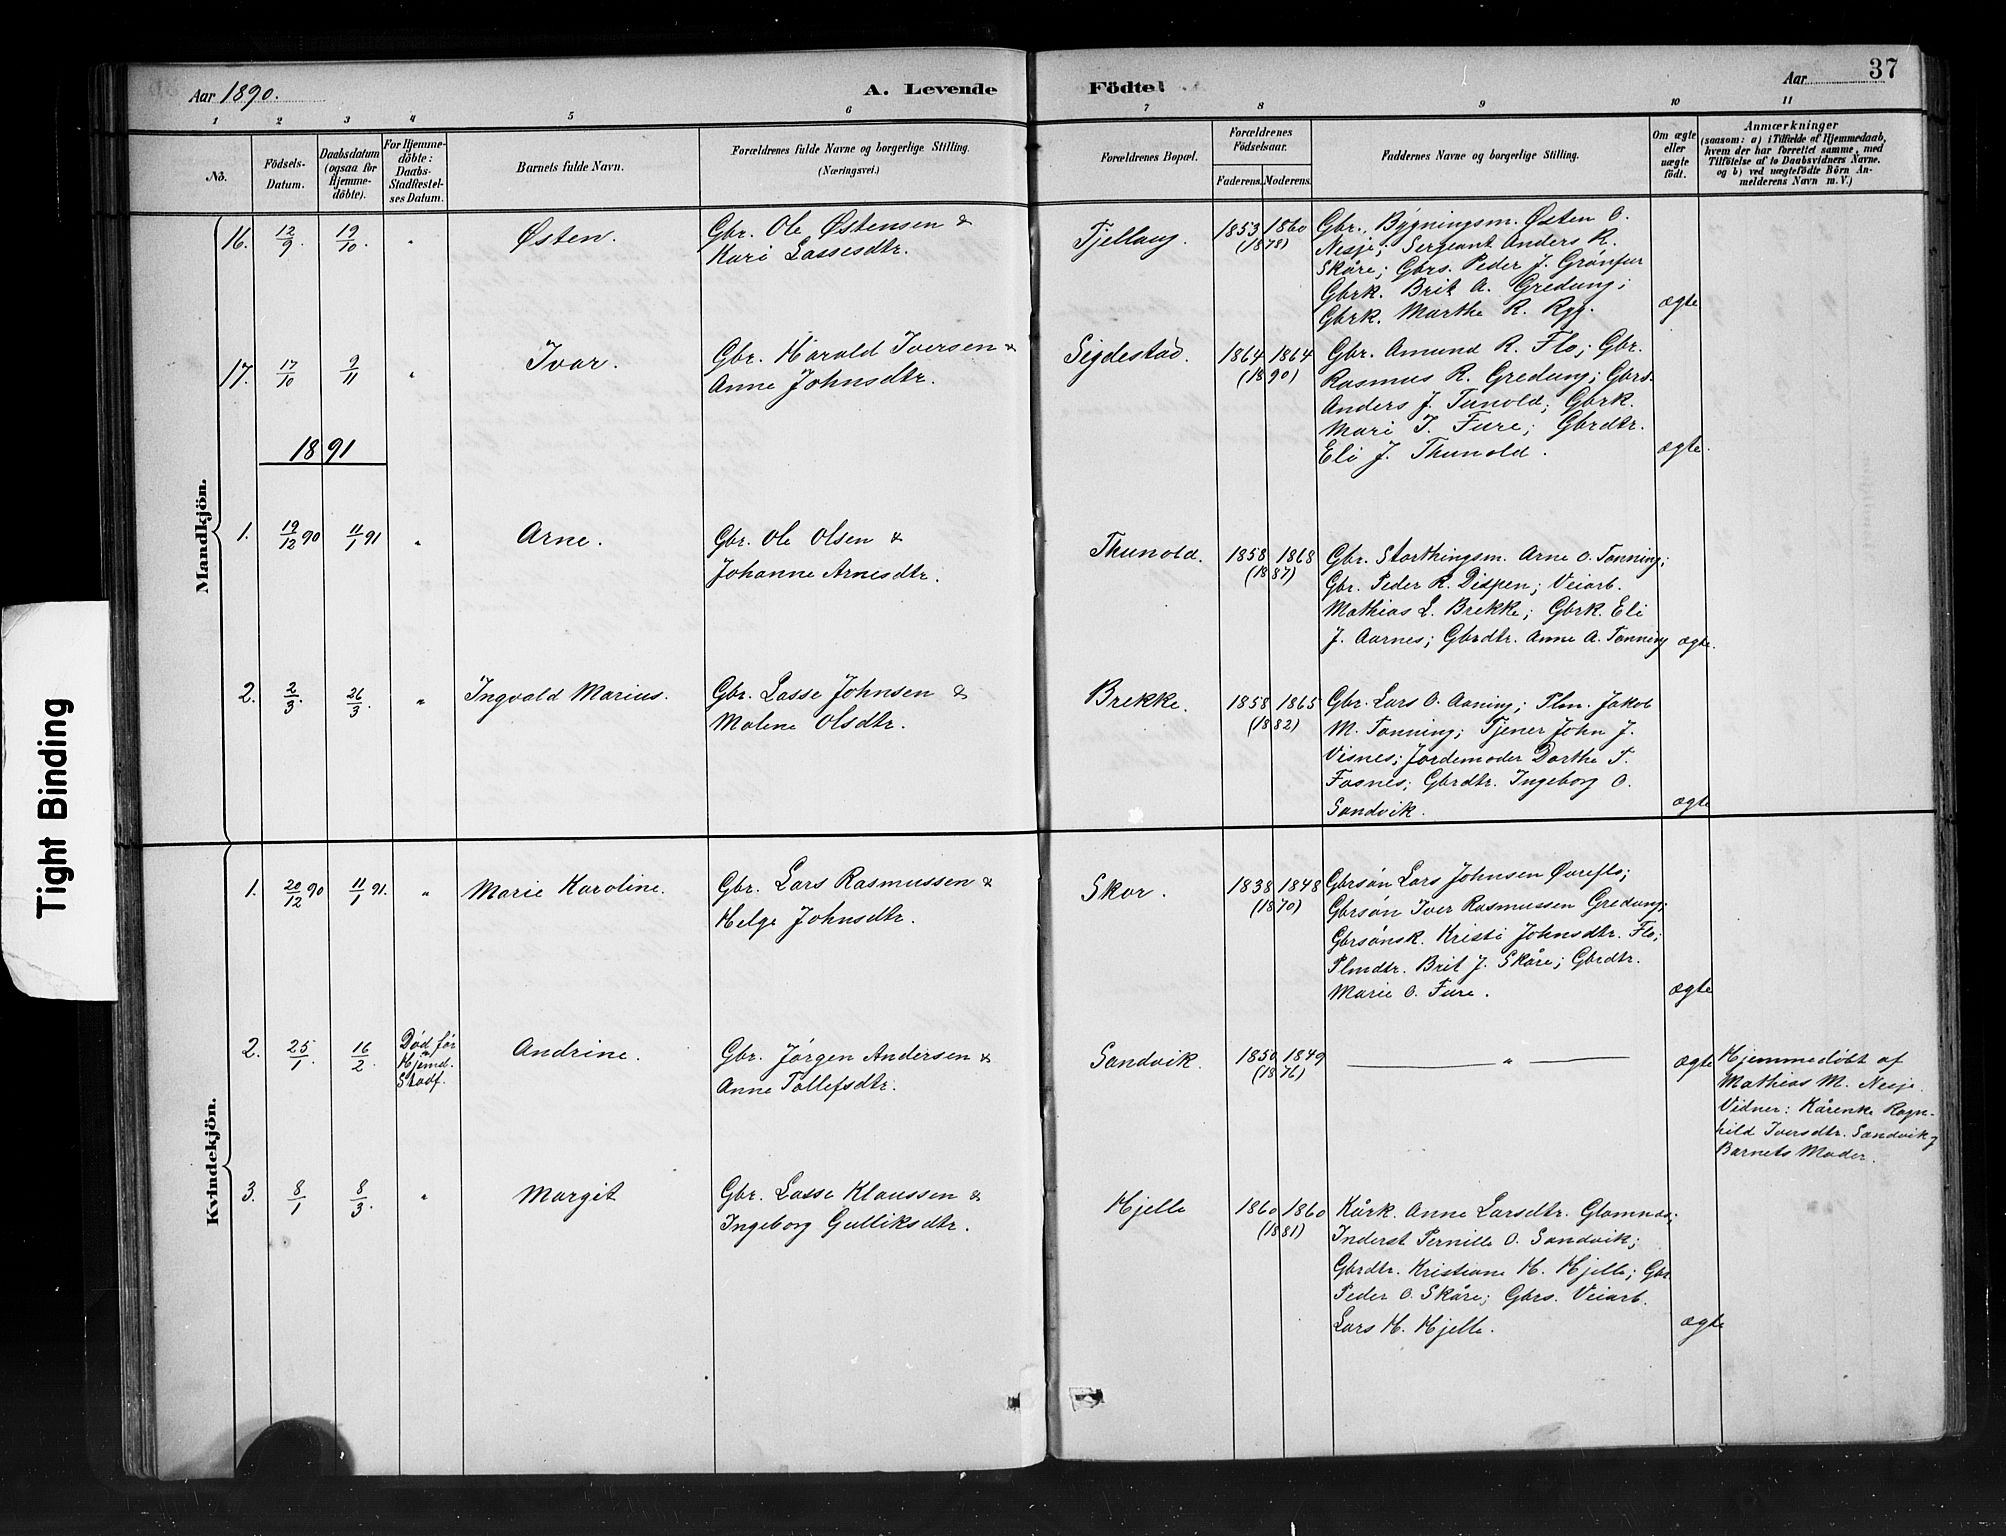 Aar 1890.
A. Levende
Födte.
Aar
37
1 2 3 4 5 6 7 8 9 10 11
No.
Födsels-
Datum.
Daabsdatum
(ogsaa for
Hjemme-
döbte).
For Hjemme-
döbte:
Daabs-
Stadfæstel-
ses Datum.
Barnets fulde Navn.
Forældrenes fulde Navne og borgerlige Stilling.
(Næringsvei.)
Forældrenes Bopæl.
Forældrenes
Födselsaar.
Faderens. Moderens.
Faddernes Navne og borgerlige Stilling.
Om ægte
eller
uægte
födt.
Anmærkninger
(saasom: a) i Tilfælde af Hjemmedaab,
hvem der har forrettet samme, med
Tilföielse af to Daabsvidners Navne.
og b) ved uægtefödte Börn An-
melderens Navn m. V.)
Mandkjön.
16. 12/9 19/10. " Østen. Gbr. Ole Østensen &
Kari Lassesdtr.
Tjellaug. 1853 1860
(1878)
Gbr. Bygningsm. Østen O.
Nesje; Sergeant Anders R.
Skåre; Gbrs. Peder J. Grønfur
Gbrk. Brit A. Gredung;
Gbrk. Marthe R. Ryg. ægte
17. 17/10 9/11 " Ivar. Gbr. Harald Iversen &
Anne Johnsdtr.
Sigdestad. 1864 1864
(1890)
Gbr. Amund R. Flo; Gbr.
Rasmus R. Gredung; Gbrs.
Anders J. Tunold; Gbrk.
Mari I. Fure; Gbrdtr.
Eli J. Thunold. ægte.
1891
1. 19/12 90 11/1 91 " Arne. Gbr. Ole Olsen &
Johanne Arnesdtr.
Thunold. 1858 1868
(1887)
Gbr. Storthingsm. Arne O. Tonning;
Gbr. Peder R. Dispen; Veiarb.
Mathias L. Brekke; Gbrk. Eli
J. Aarnes; Gbrdtr. Anne A. Tonning ægte.
2. 2/3. 26/3. " Ingvald Marius. Gbr. Lasse Johnsen &
Malene Olsdtr.
Brekke. 1858 1865
(1882)
Gbr. Lars O. Aaning; Plm. Jakob
M. Tonning; Tjener John J.
Visnes; Jordemoder Dorthe T.
Fosnes; Gbrdtr. Ingeborg O.
Sandvik. ægte
Kvindekjön.
1. 20/12 90 11/1 91. " Marie Karoline. Gbr. Lars Rasmussen &
Helge Johnsdtr.
Skor. 1838 1848
(1870)
Gbrsøn Lars Johnsen Øvreflo;
Gbrsøn Iver Rasmussen Gredung;
Gbrsønsk. Kristi Johnsdtr. Flo;
Plmdtr. Brit J. Skåre; Gbrdtr.
Marie O. Fure. ægte
2. 25/1. 16/2. Død før
Hjemd.
Stadf.
Andrine. Gbr. Jørgen Andersen &
Anne Tollefsdtr.
Sandvik. 1850 1849
(1876)
" ægte
Hjemmedøbt af
Mathias M. Nesje.
Vidner: Kårenke Ragn-
hild Iversdtr. Sandvik og
Barnets Moder.
3. 8/1 8/3. " Margit Gbr. Lasse Klaussen &
Ingeborg Gulliksdtr.
Hjelle 1860 1860
(1881)
Kårk. Anne Larsdtr. Glomnes;
Inderst Pernille O. Sandvik;
Gbrdtr. Kristiane H. Hjelle; Gbr.
Peder O. Skåre; Gbrs. Veiarb.
Lars H. Hjelle. ægte
Tight Binding